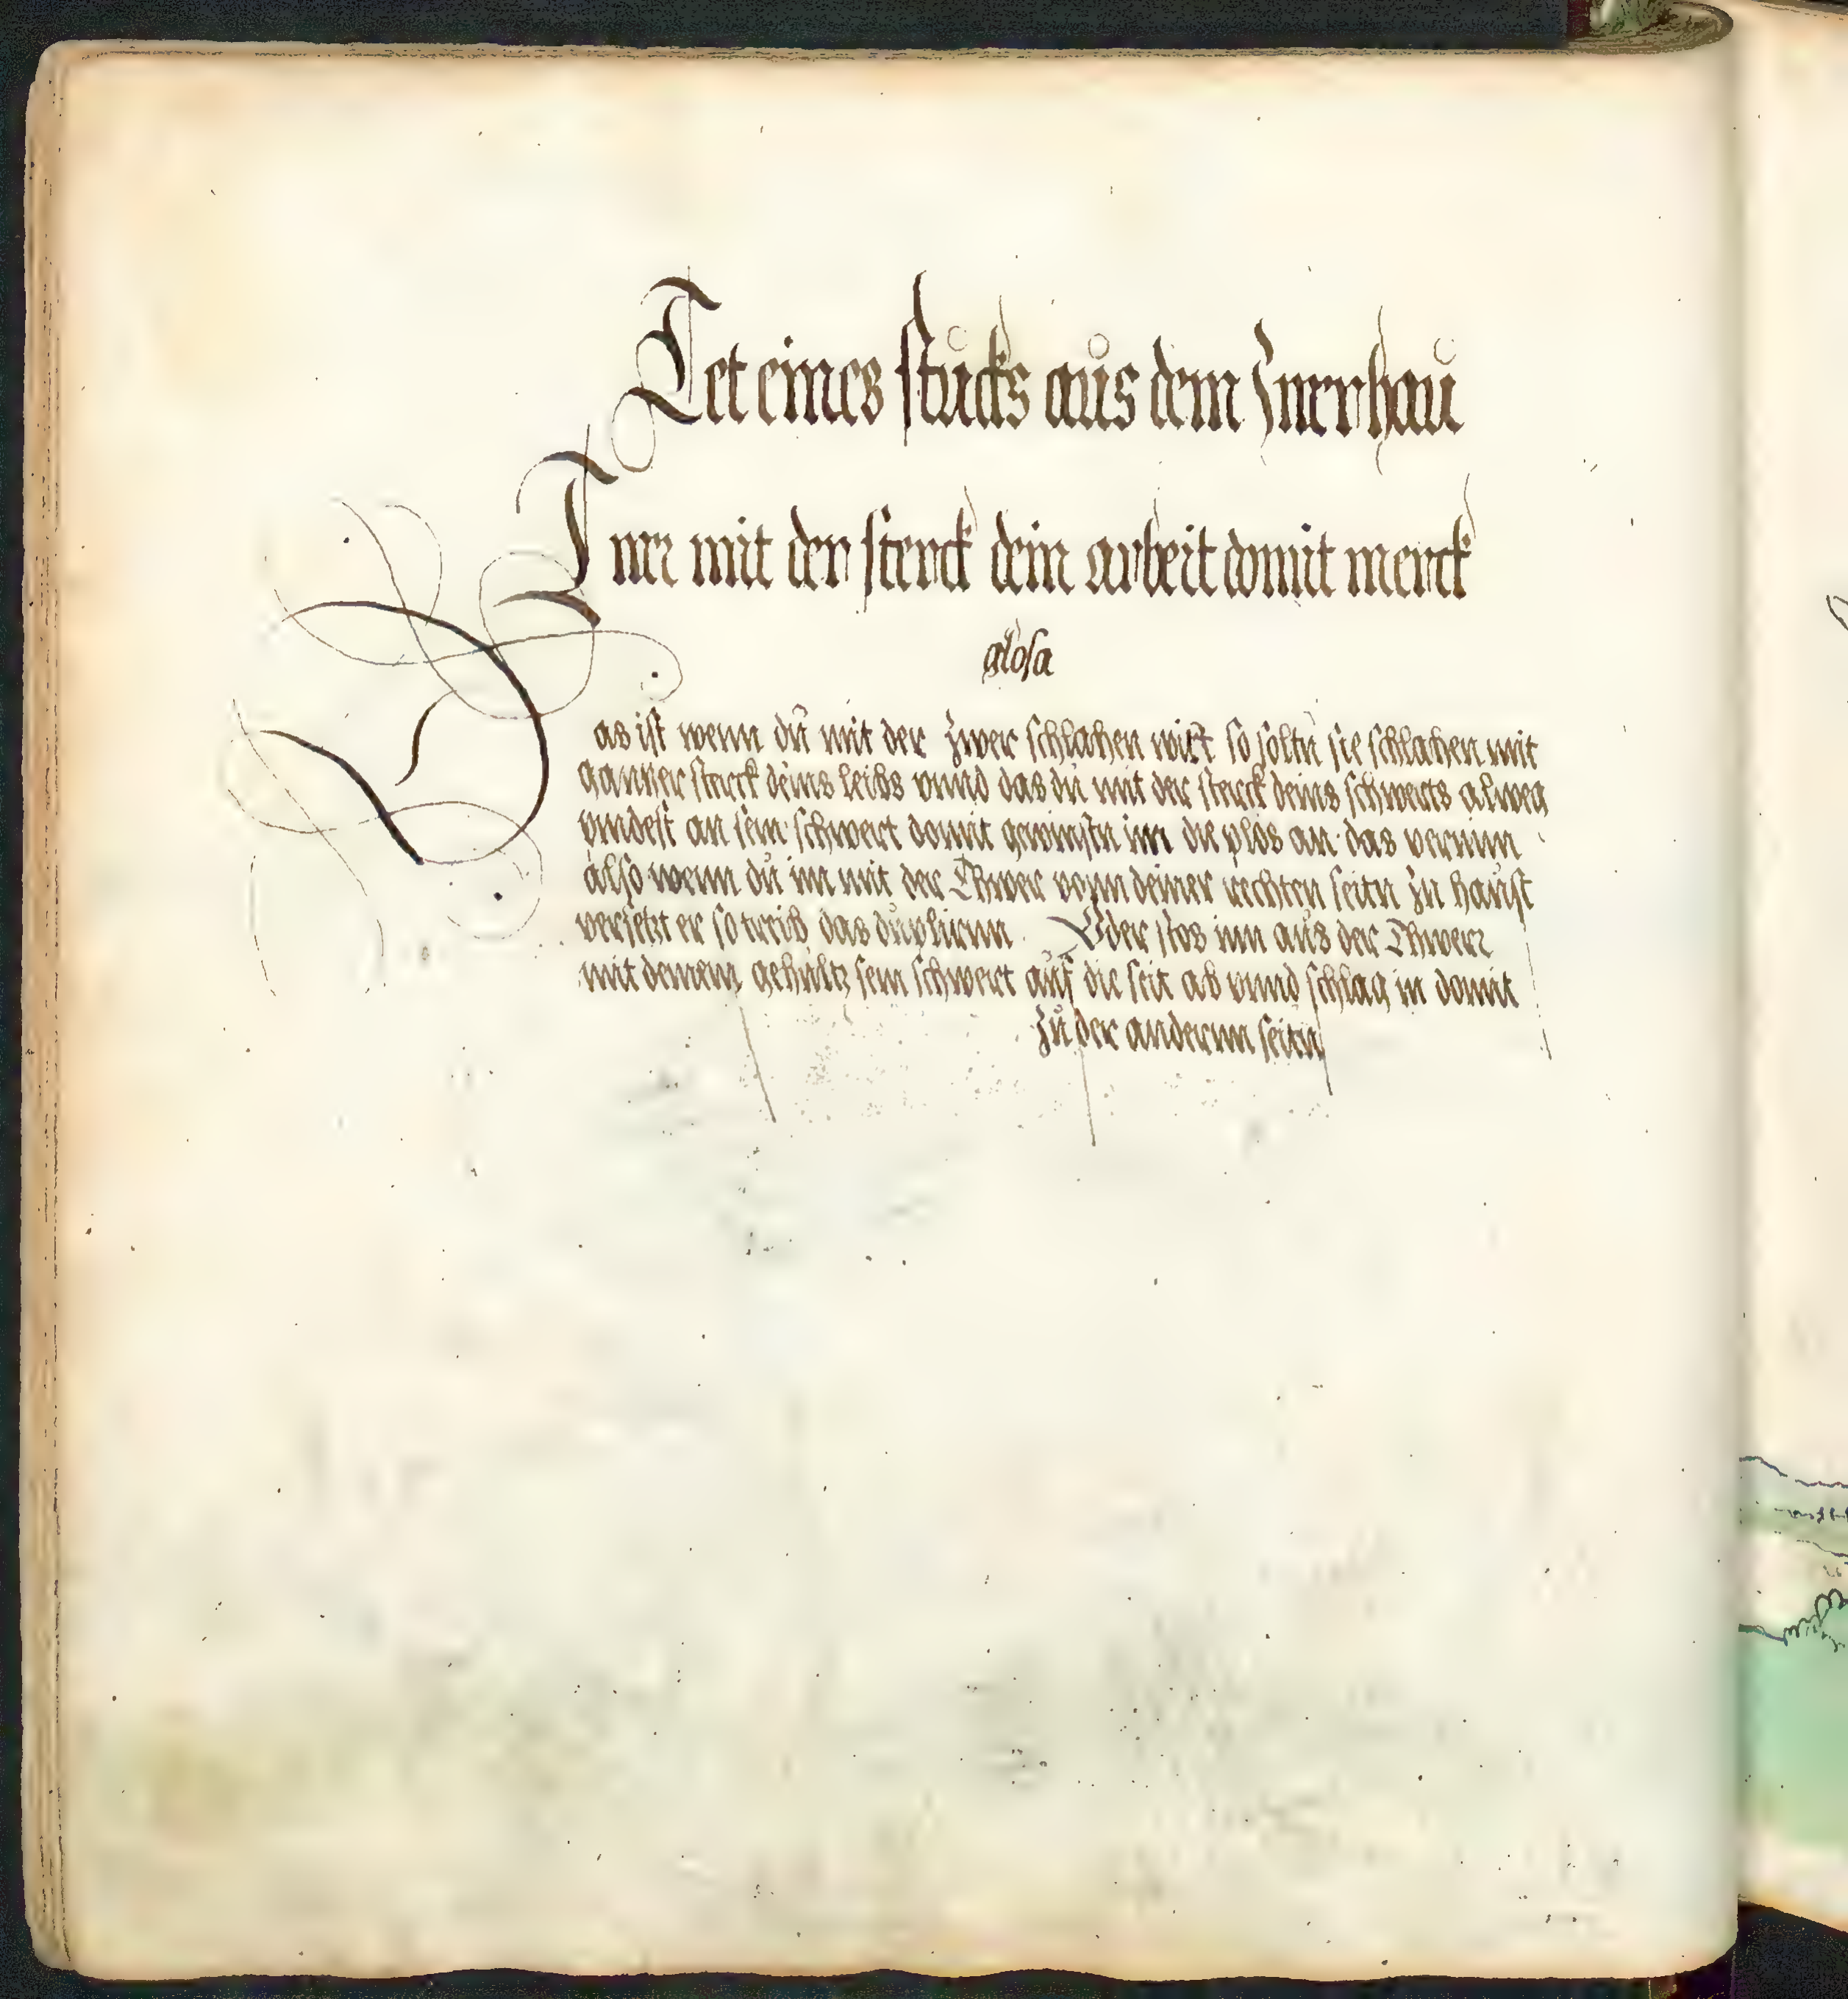 Tet eines stucks aus dem Zwerhau
Twer mit der sterck dein arbeit domit merck
glosa
Das ist wenn du mit der zwer schlahen wilt so soltu sie schlahen mit
gantzer sterck deins leibs vnnd das du mit der sterck deins schwerts alweg
vindest an sein schwert domit gewinstu im die plös an. das vernim
also wenn du im mit der Thwer vonn deiner rechten seitn zu haust
versetzt er so treib das duplirnn. Oder stos inn aus der Thwerr
mit deinem gehultz sein schwert auf die seit ab vnnd schlag in domit
zu der andernn seitn